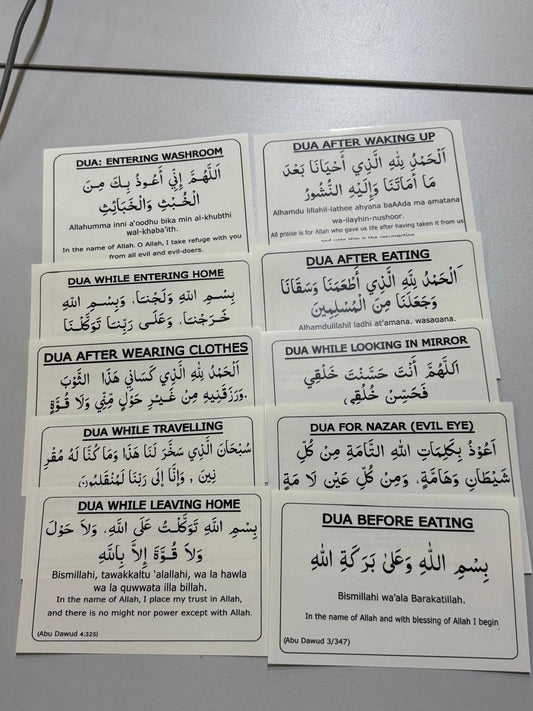 DUA: ENTERING WASHROOM
اَللّٰهُمَّ إِنِّي أَعُوذُ بِكَ مِنَ
الْخُبْثِ وَالْخَبَائِثِ
Allahumma inni a'oodhu bika min al-khubthi
wal-khaba'ith.
In the name of Allah. O Allah, I take refuge with you
from all evil and evil-doers.
DUA WHILE ENTERING HOME
بِسْمِ اللهِ وَلَجْنَا، وَبِسْمِ اللهِ
خَرَجْنَا، وَعَلَى رَبِّنَا تَوَكَّلْنَا
DUA AFTER WEARING CLOTHES
اَلْحَمْدُ لِلّٰهِ الَّذِي كَسَانِي هَذَا الثَّوْبَ
وَرَزَقَنِيهِ مِنْ غَيْرِ حَوْلٍ مِنِّي وَلَا قُوَّةٍ.
DUA WHILE TRAVELLING
سُبْحَانَ الَّذِي سَخَّرَ لَنَا هَذَا وَمَا كُنَّا لَهُ مُقْرِ
نِينَ , وَإِنَّا إِلَى رَبِّنَا لَمُنْقَلِبُونَ
DUA WHILE LEAVING HOME
بِسْمِ اللهِ تَوَكَّلْتُ عَلَى اللهِ، وَلاَ حَوْلَ
وَلاَ قُوَّةَ إِلاَّ بِاللهِ
Bismillahi, tawakkaltu 'alallahi, wa la hawla
wa la quwwata illa billah.
In the name of Allah, I place my trust in Allah,
and there is no might nor power except with Allah.
(Abu Dawud 4:325)
DUA AFTER WAKING UP
اَلْحَمْدُ لِلّٰهِ الَّذِي أَحْيَانَا بَعْدَ
مَا أَمَاتَنَا وَإِلَيْهِ النُّشُورُ
Alhamdu lillahil-lathee ahyana baAAda ma amatana
wa-ilayhin-nushoor.
All praise is for Allah who gave us life after having taken it from us
and unto Him is the resurrection
DUA AFTER EATING
اَلْحَمْدُ لِلّٰهِ الَّذِي أَطْعَمَنَا وَسَقَانَا
وَجَعَلَنَا مِنَ الْمُسْلِمِينَ
Alhamdulilahil ladhi at'amana, wasaqana,
DUA WHILE LOOKING IN MIRROR
اَللّٰهُمَّ أَنْتَ حَسَّنْتَ خَلْقِي
فَحَسِّنْ خُلُقِي
DUA FOR NAZAR (EVIL EYE)
اَعُوْذُ بِكَلِمَاتِ اللهِ التَّامَةِ مِنْ كُلِّ
شَيْطَانٍ وَهَامَّةٍ، وَمِنْ كُلِّ عَيْنٍ لَا مَةٍ
DUA BEFORE EATING
بِسْمِ اللّٰهِ وَعَلىٰ بَرَكَةِ اللهِ
Bismillahi wa'ala Barakatillah.
In the name of Allah and with blessing of Allah I begin
(Abu Dawud 3/347)